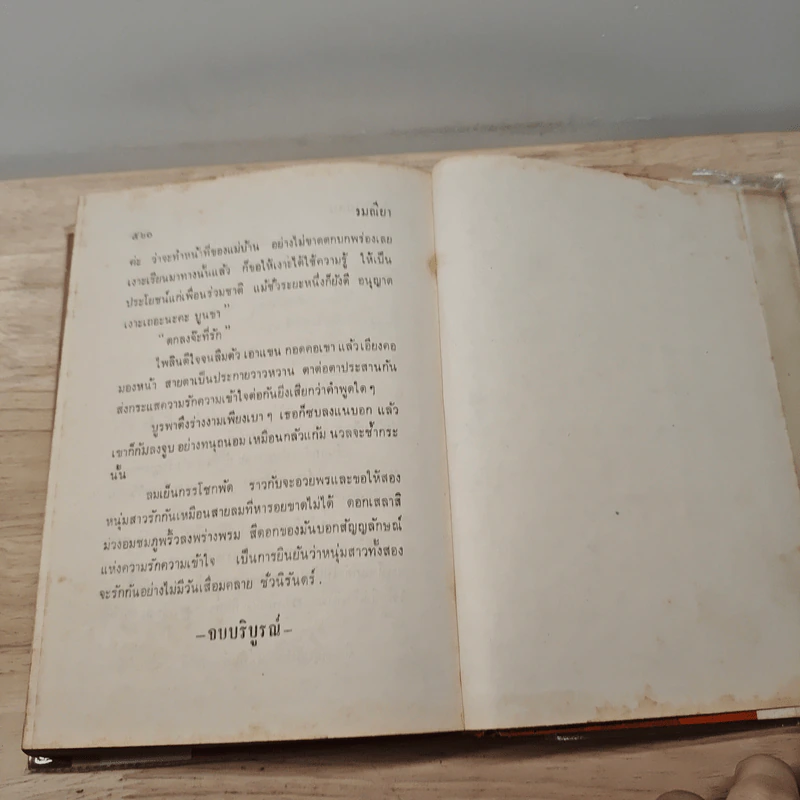 รมณียา
๙๖๐
ค่ะ ว่าจะทำหน้าที่ของแม่บ้าน อย่างไม่ขาดตกบกพร่องเลย
เงาะเรียนมาทางนั้นแล้ว ก็ขอให้เงาะได้ใช้ความรู้ ให้เป็น
ประโยชน์แก่เพื่อนร่วมชาติ แม้ชั่วระยะหนึ่งก็ยังดี อนุญาต
เงาะเถอะนะคะ บูนขา"
"ตกลงจ๊ะที่รัก"
ไพลินดีใจจนลืมตัว เอาแขน กอดคอเขา แล้วเอียงคอ
มองหน้า สายตาเป็นประกายวาวหวาน ตาต่อตาประสานกัน
ส่งกระแสความรักความเข้าใจต่อกันยิ่งเสียกว่าคำพูดใด ๆ
บูรพาดึงร่างงามเพียงเบา ๆ เธอก็ซบลงแนบอก แล้ว
เขาก็ก้มลงจูบ อย่างทนุถนอม เหมือนกลัวแก้ม นวลจะช้ำกระ
นั้น
ลมเย็นกรรโชกพัด ราวกับจะอวยพรและขอให้สอง
หนุ่มสาวรักกันเหมือนสายลมที่หารอยขาดไม่ได้ ดอกเสลาสี
ม่วงอมชมภูพริ้วลงพร่างพรม สีดอกของมันบอกสัญญลักษณ์
แห่งความรักความเข้าใจ เป็นการยืนยันว่าหนุ่มสาวทั้งสอง
จะรักกันอย่างไม่มีวันเสื่อมคลาย ชั่วนิรันดร์.
—จบบริบูรณ์—